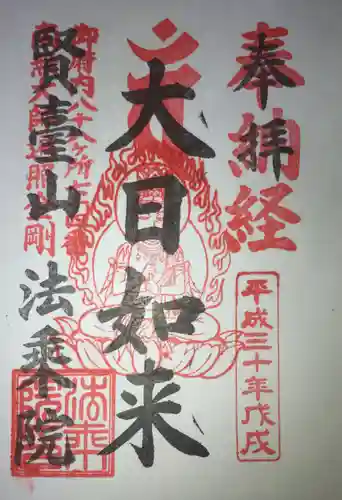 奉拝
奉納経
平成三十年戊戌
大日如来
御府内八十八ヶ所七十四番
南無大師遍照金剛
賢臺山 法乗院